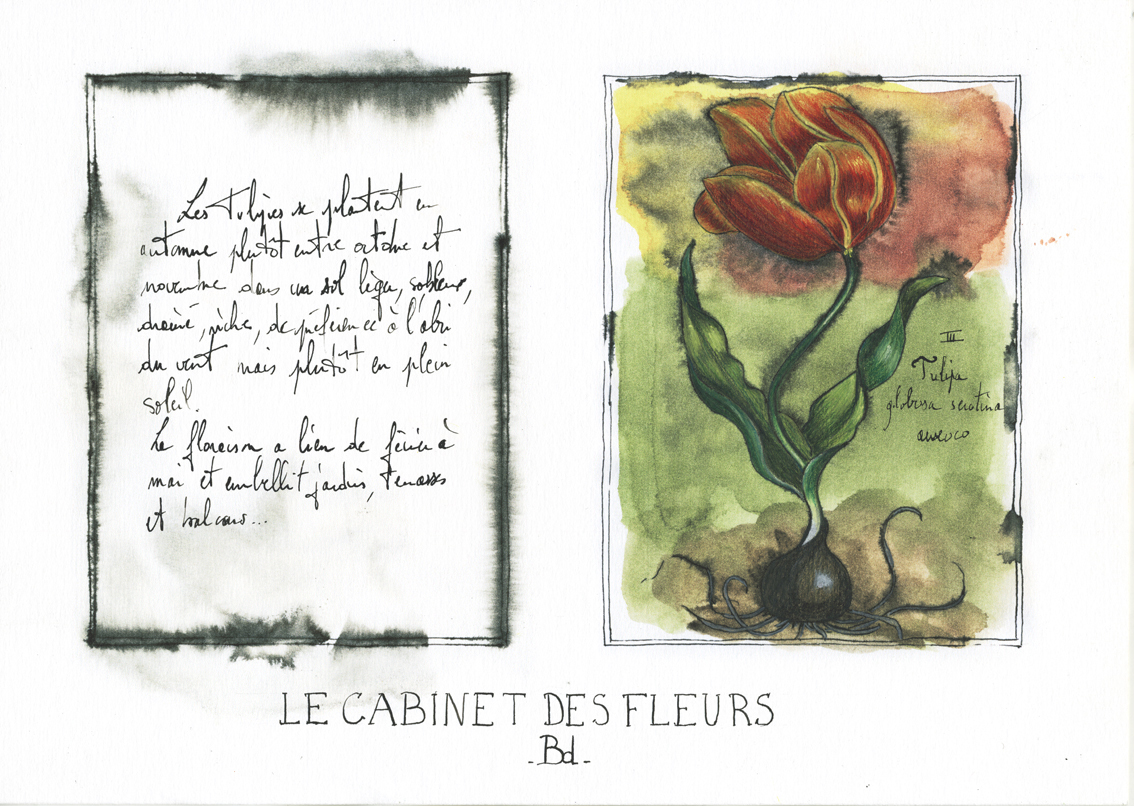 Les Tulipes se plantent en
automne plutôt entre octobre et
novembre dans un sol léger, sableux,
drainé, riche, de préférence à l'abri
du vent mais plutôt en plein
soleil.
La floraison a lieu de février à
mai et embellit jardins, terrasses
et balcons...
III
Tulipa
globosa serotina
LE CABINET DES FLEURS
- Bd -